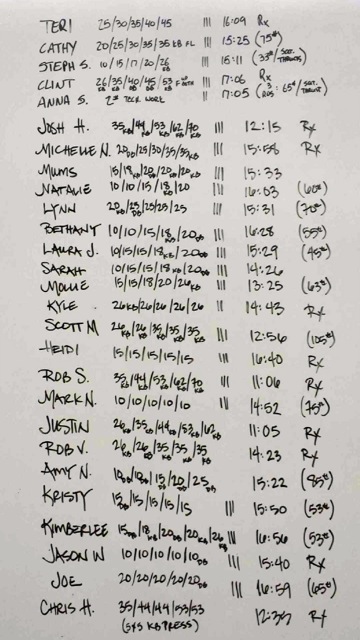 TERI 25/30/35/40/45 ||| 16:09 Rx
CATHY 20/25/30/35/35 KB FL ||| 15:25 (75#)
STEPH S. 10/15/17/20/26 KB ||| 15:11 (33#/
CLINT 26/35/40/45/53 ||| 17:06 Rx
ANNA S. 2 WORK ||| 17:05 (65#/
JOSH H. 35KB/44/53/62/70 KB ||| 12:15 Rx
MICHELLE N. 20DB/25/30/35/35KB ||| 15:58 Rx
MUMS 15/18KB/20/20/20 ||| 15:33
NATALIE 10/10/15/18KB/20 ||| 16:03 (60#)
LYNN 20/25/25/25/25 ||| 15:31 (70#)
BETHANY 10/10/15/18/20DB ||| 16:28 (55#)
LAURA J. 10/15/15/18KB/20DB ||| 15:29 (45#)
SARAH 10/15/15/18KB/20DB ||| 14:26
MOLLIE 15/15/18/20/26KB ||| 13:25 (63#)
KYLE 26KB/26/26/26/26 ||| 14:43 Rx
SCOTT M 26KB/26/35/35/35 ||| 12:56 (105#)
HEIDI 15/15/15/15/15 ||| 16:40 Rx
ROB S. 35/44/53/62/70 ||| 11:06 Rx
MARK N. 10/10/10/10/10 ||| 14:52 (75#)
JUSTIN 26KB/35/44/53/62KB 11:05 Rx
ROB V. 26/26/35/35/35 KB 14:23 Rx
AMY N. 10DB/10/15/20/25DB 15:22 (85#)
KRISTY 15DB/15/15/15/15 ||| 15:50 (53#)
KIMBERLEE 15DB/18KB/20DB/20KB/26KB ||| 16:56 (53#)
JASON W 10/10/10/10/10DB ||| 15:40 Rx
JOE 20/20/20/20/20DB ||| 16:59 (65#)
CHRIS H. 35/44/44/53/53 12:35 Rx
(5x5 KB PRESS)